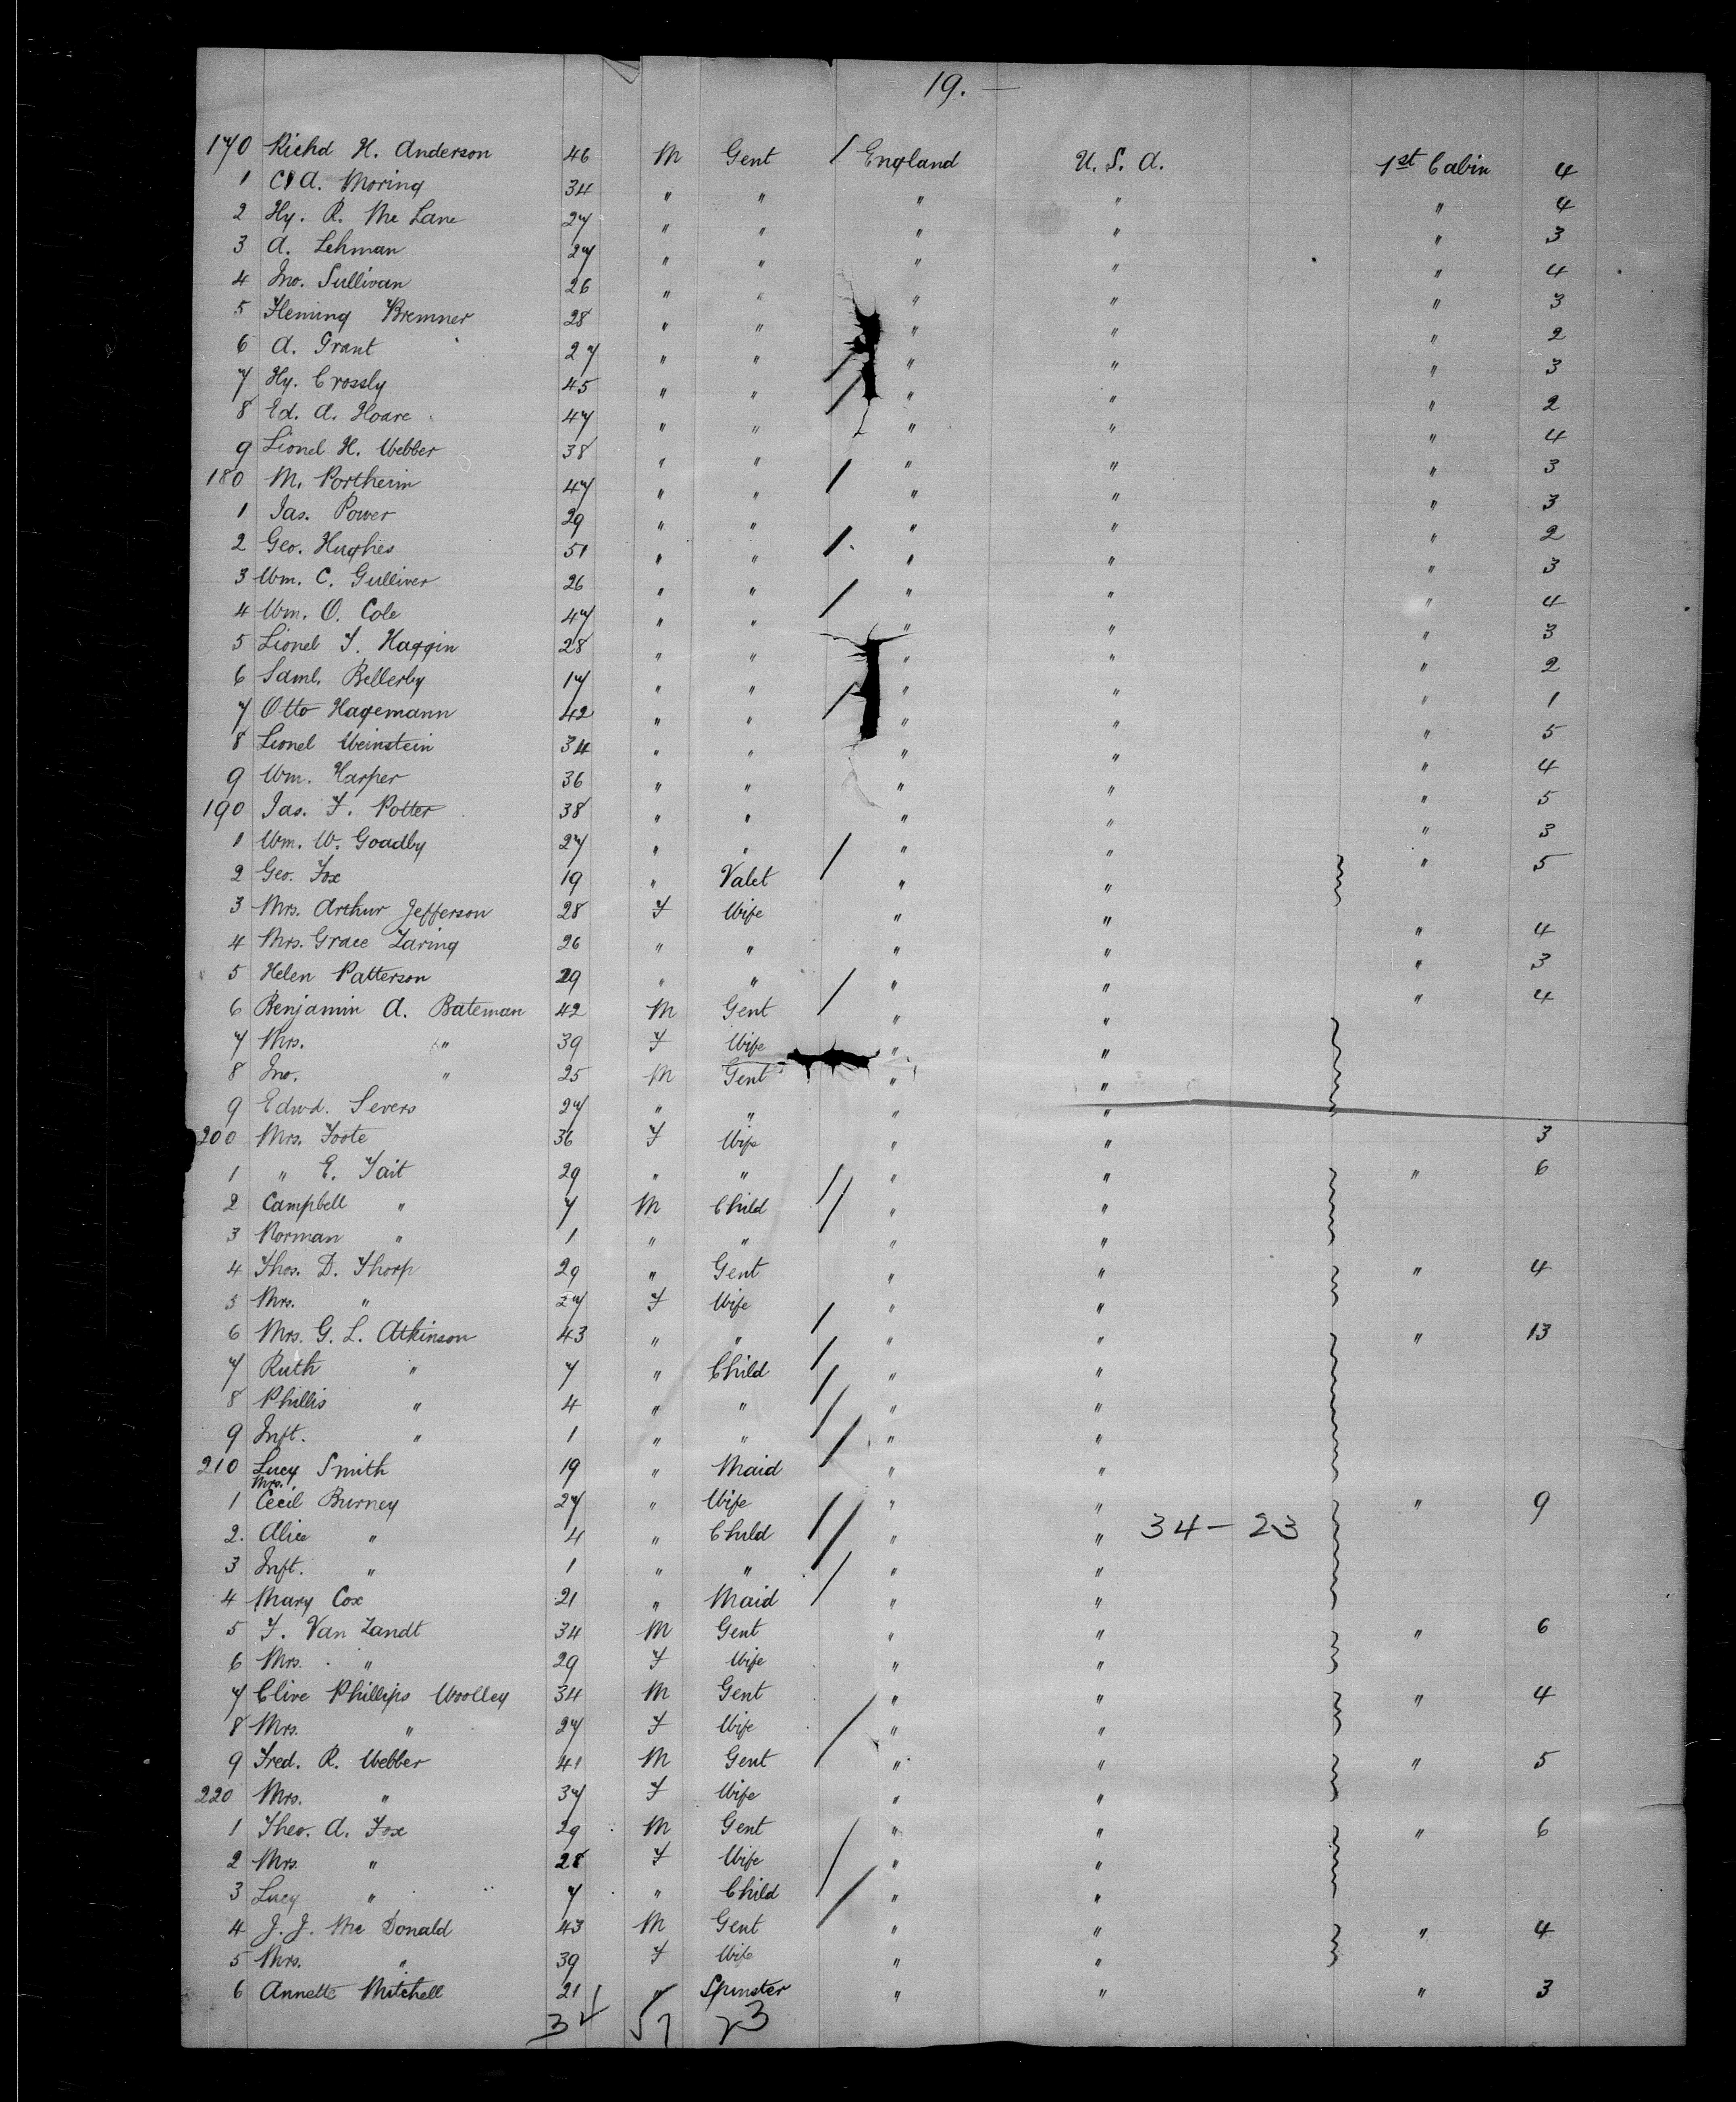 19. —
170 Richd H. Anderson 46 M Gent / England U. S. A. 1st Cabin 4
1 C A. Moring 34 " " " " " 4
2 Hy. R. Mc Lane 27 " " " " " 3
3 A. Lehman 27 " " " " " 4
4 Jno. Sullivan 26 " " " " " 3
5 Fleming Bremner 28 " " " " " 2
6 A. Grant 27 " " / " " " 3
7 Hy. Crossly 45 " " / " " " 2
8 Ed. A. Hoare 47 " " " " " 4
9 Lionel H. Webber 38 " " " " " 3
180 M. Portheim 47 " " / " " " 3
1 Jas. Power 29 " " " " " 2
2 Geo. Hughes 51 " " / " " " 3
3 Wm. C. Gulliver 26 " " / " " " 4
4 Wm. O. Cole 47 " " " " " 3
5 Lionel T. Haggin 28 " " " " " 2
6 Saml. Bellerby 17 " " / " " " 1
7 Otto Hagemann 42 " " " " " 5
8 Lionel Weinstein 34 " " " " " 4
9 Wm. Harper 36 " " " " " 5
190 Jas. F. Potter 38 " " " " " 3
1 Wm. W. Goadby 27 " " / " " " 5
2 Geo. Fox 19 " Valet " "
3 Mrs. Arthur Jefferson 28 F Wife " " " 4
4 Mrs. Grace Zaring 26 " " " " " 3
5 Helen Patterson 29 " " / " " " 4
6 Benjamin A. Bateman 42 M Gent " "
7 Mrs. " 39 F Wife " "
8 Jno. " 25 M Gent " "
9 Edwd. Severs 27 " " " "
200 Mrs. Foote 36 F Wife " " 3
1 " E. Tait 29 " " / " " " 6
2 Campbell " 7 M Child / " "
3 Norman " 1 " " " "
4 Thos. D. Thorp 29 " Gent " " " 4
5 Mrs. " 27 F Wife / " "
6 Mrs. G. L. Atkinson 43 " " / " " " 13
7 Ruth " 7 " Child / " "
8 Phillis " 4 " " / " "
9 Inft. " 1 " " / " "
210 Lucy Smith 19 " Maid " "
Mrs.
1 Cecil Burney 27 " Wife / " " " 9
2. Alice " 4 " Child / " " 34 — 23
3 Inft. " 1 " " / " "
4 Mary Cox 21 " Maid " "
5 F. Van Zandt 34 M Gent " " " 6
6 Mrs. " 29 F Wife " "
7 Clive Phillips Woolley 34 M Gent " " " 4
8 Mrs. " 27 F Wife / " "
9 Fred. R. Webber 41 M Gent " " " 5
220 Mrs. " 37 F Wife " "
1 Theo. A. Fox 29 M Gent / " " " 6
2 Mrs. " 28 F Wife " "
3 Lucy " 7 " Child / " "
4 J. J. Mc Donald 43 M Gent " " " 4
5 Mrs. " 39 F Wife " "
6 Annette Mitchell 21 " Spinster " " " 3
34 57 23